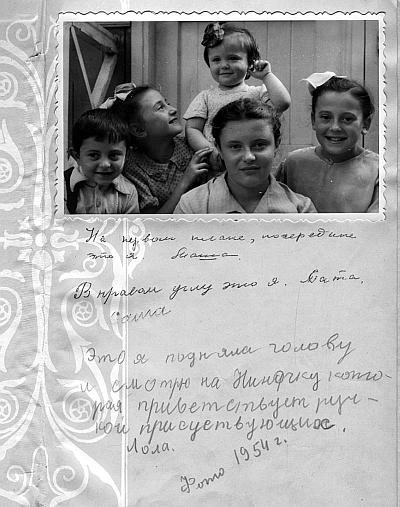 На первом плане, посередине
это я
В правом углу это я. Тата.
Саша
Это я подняла голову
и смотрю на Ниночку кото-
рая приветствует руч-
кой присуствующих.
Лола.
Фото 1954 г.